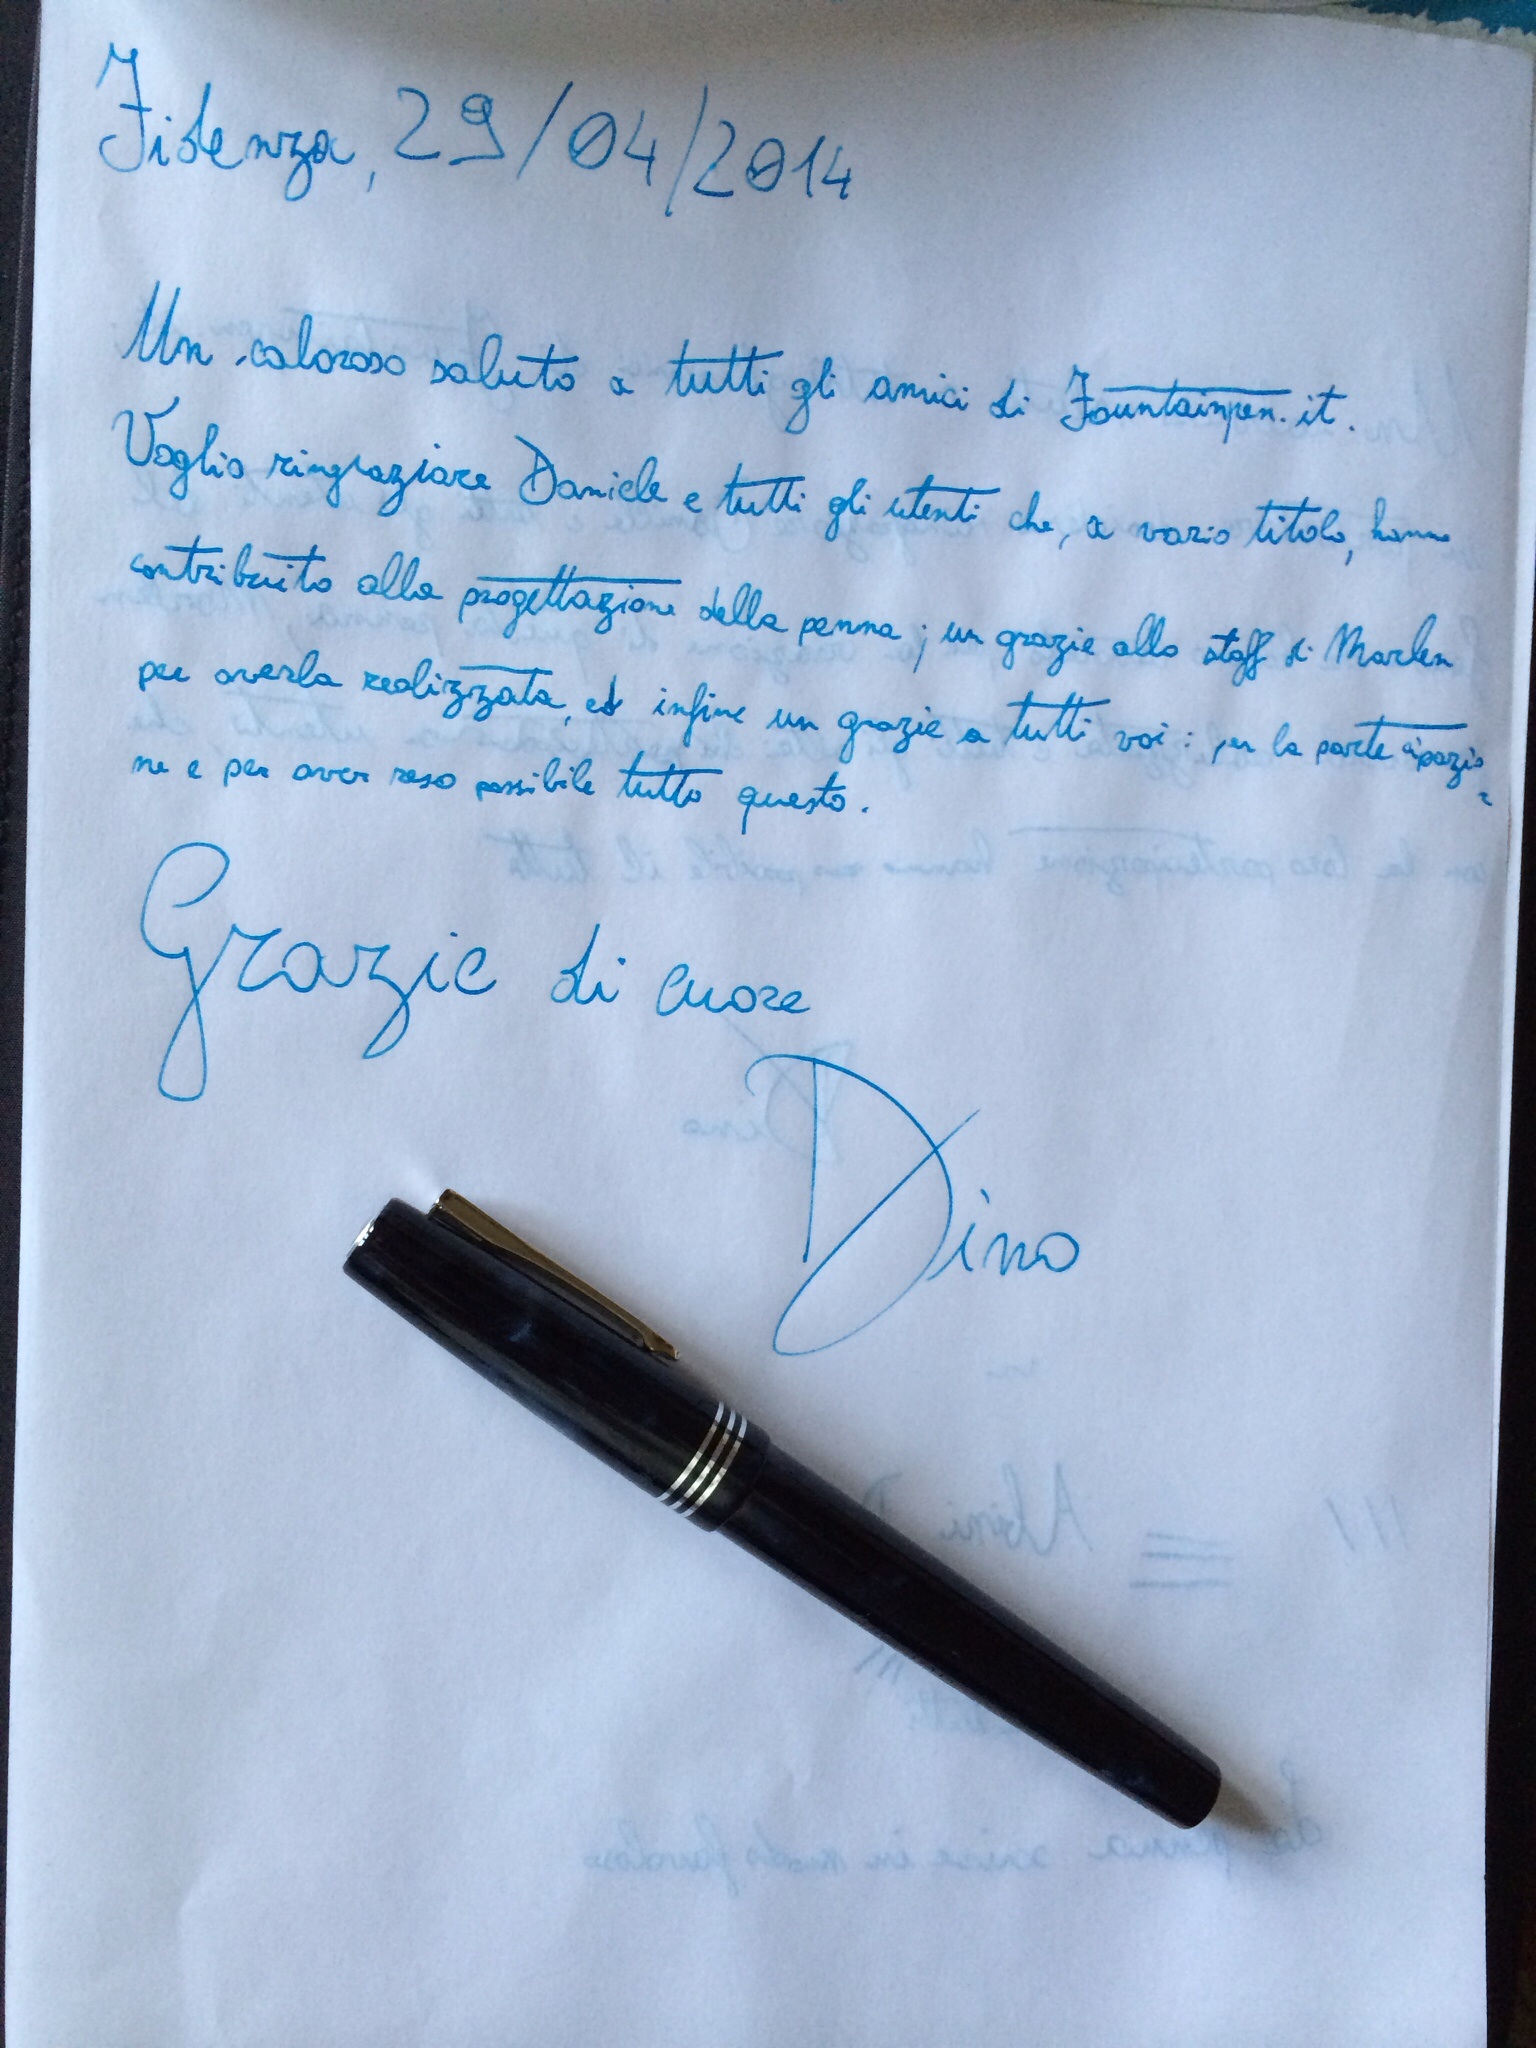 Fidenza, 29/04/2014
Un caloroso saluto a tutti gli amici di Fountainpen.it.
Voglio ringraziare Daniele e tutti gli utenti che, a vario titolo, hanno
contribuito alla progettazione della penna; un grazie allo staff di Marlen
per averla realizzata, ed infine un grazie a tutti voi: per la partecipazio
ne e per aver reso possibile tutto questo.
Grazie di cuore
Dino